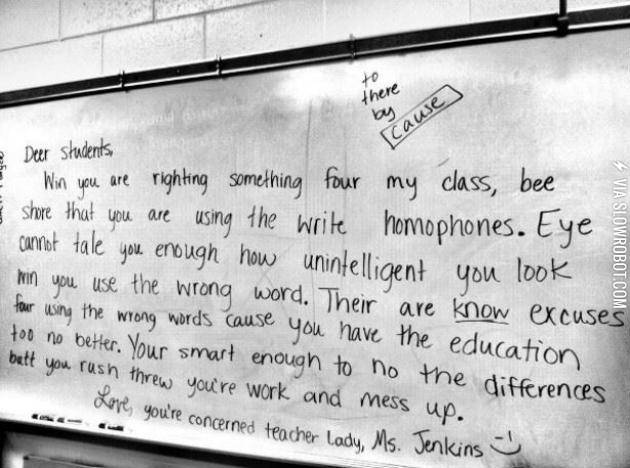 to
there
by
cause
Deer students,
Win you are righting something four my class, bee
shore that you are using the write homophones. Eye
cannot tale you enough how unintelligent you look
win you use the wrong word. Their are know excuses
four using the wrong words cause you have the education
too no better. Your smart enough to no the differences
butt you rush threw you're work and mess up.
Love, you're concerned teacher lady, Ms. Jenkins
VIA SLOWROBOT.COM